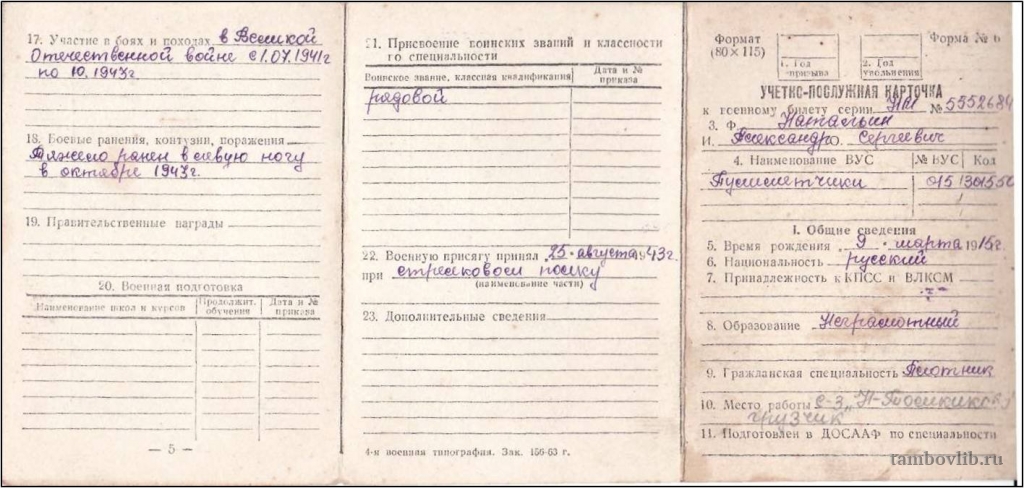 17. Участие в боях и походах в Великой
Отечественной войне с 1.07.1941г
по 10.1943г.
18. Боевые ранения, контузии, поражения
Тяжело ранен в левую ногу
в октябре 1943г.
19. Правительственные награды
20. Военная подготовка
Наименование школ и курсов
Продолжит. обучения
Дата и № приказа
— 5 —
21. Присвоение воинских званий и классности
по специальности
Воинское звание, классная квалификация
Дата и № приказа
рядовой
22. Военную присягу принял 25 августа 1943г.
при стрелковом полку
(наименование части)
23. Дополнительные сведения
4-я военная типография. Зак. 156-63 г.
Формат
(80×115)
Форма № 6
1. Год призыва
2. Год увольнения
УЧЕТНО-ПОСЛУЖНАЯ КАРТОЧКА
к военному билету серии НМ № 5552684
3. Ф.
И. Александр О. Сергеевич
4. Наименование ВУС
№ ВУС
Код
Пулеметчики
I. Общие сведения
5. Время рождения 9 марта 1915г.
6. Национальность русский
7. Принадлежность к КПСС и ВЛКСМ
8. Образование Неграмотный
9. Гражданская специальность Плотник
10. Место работы с-з
грузчик
11. Подготовлен в ДОСААФ по специальности
tambovlib.ru